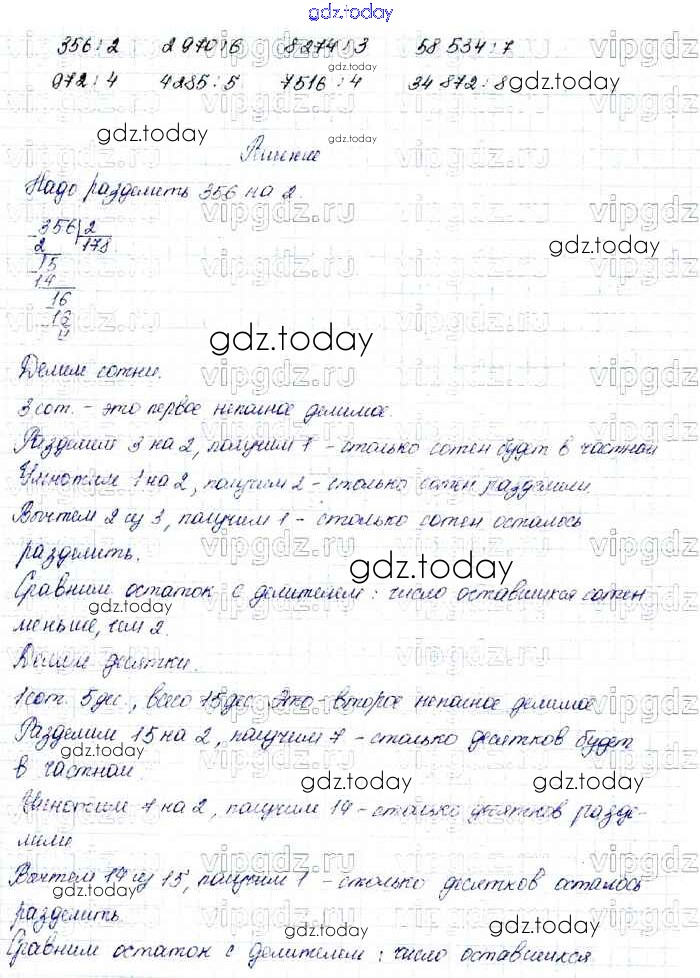 gdz.today
356 : 2 2970 : 6 8274 : 3 58 534 : 7
972 : 4 4285 : 5 7516 : 4 34 872 : 8
Решение
Надо разделить 356 на 2.
356 2
2 178
15
14
16
16
0
Делим сотни.
3 сот. - это первое неполное делимое.
Разделим 3 на 2, получим 1 - столько сотен будет в частном
Умножим 1 на 2, получим 2 - столько сотен разделили.
Вычтем 2 из 3, получим 1 - столько сотен осталось
разделить.
Сравним остаток с делителем: число оставшихся сотен
меньше, чем 2.
Делим десятки.
1 сот. 5 дес., всего 15 дес. Это - второе неполное делимое
Разделим 15 на 2, получим 7 - столько десятков будет
в частном.
Умножим 7 на 2, получим 14 - столько десятков разде-
лили
Вычтем 14 из 15, получим 1 - столько десятков осталось
разделить.
Сравним остаток с делителем: число оставшихся